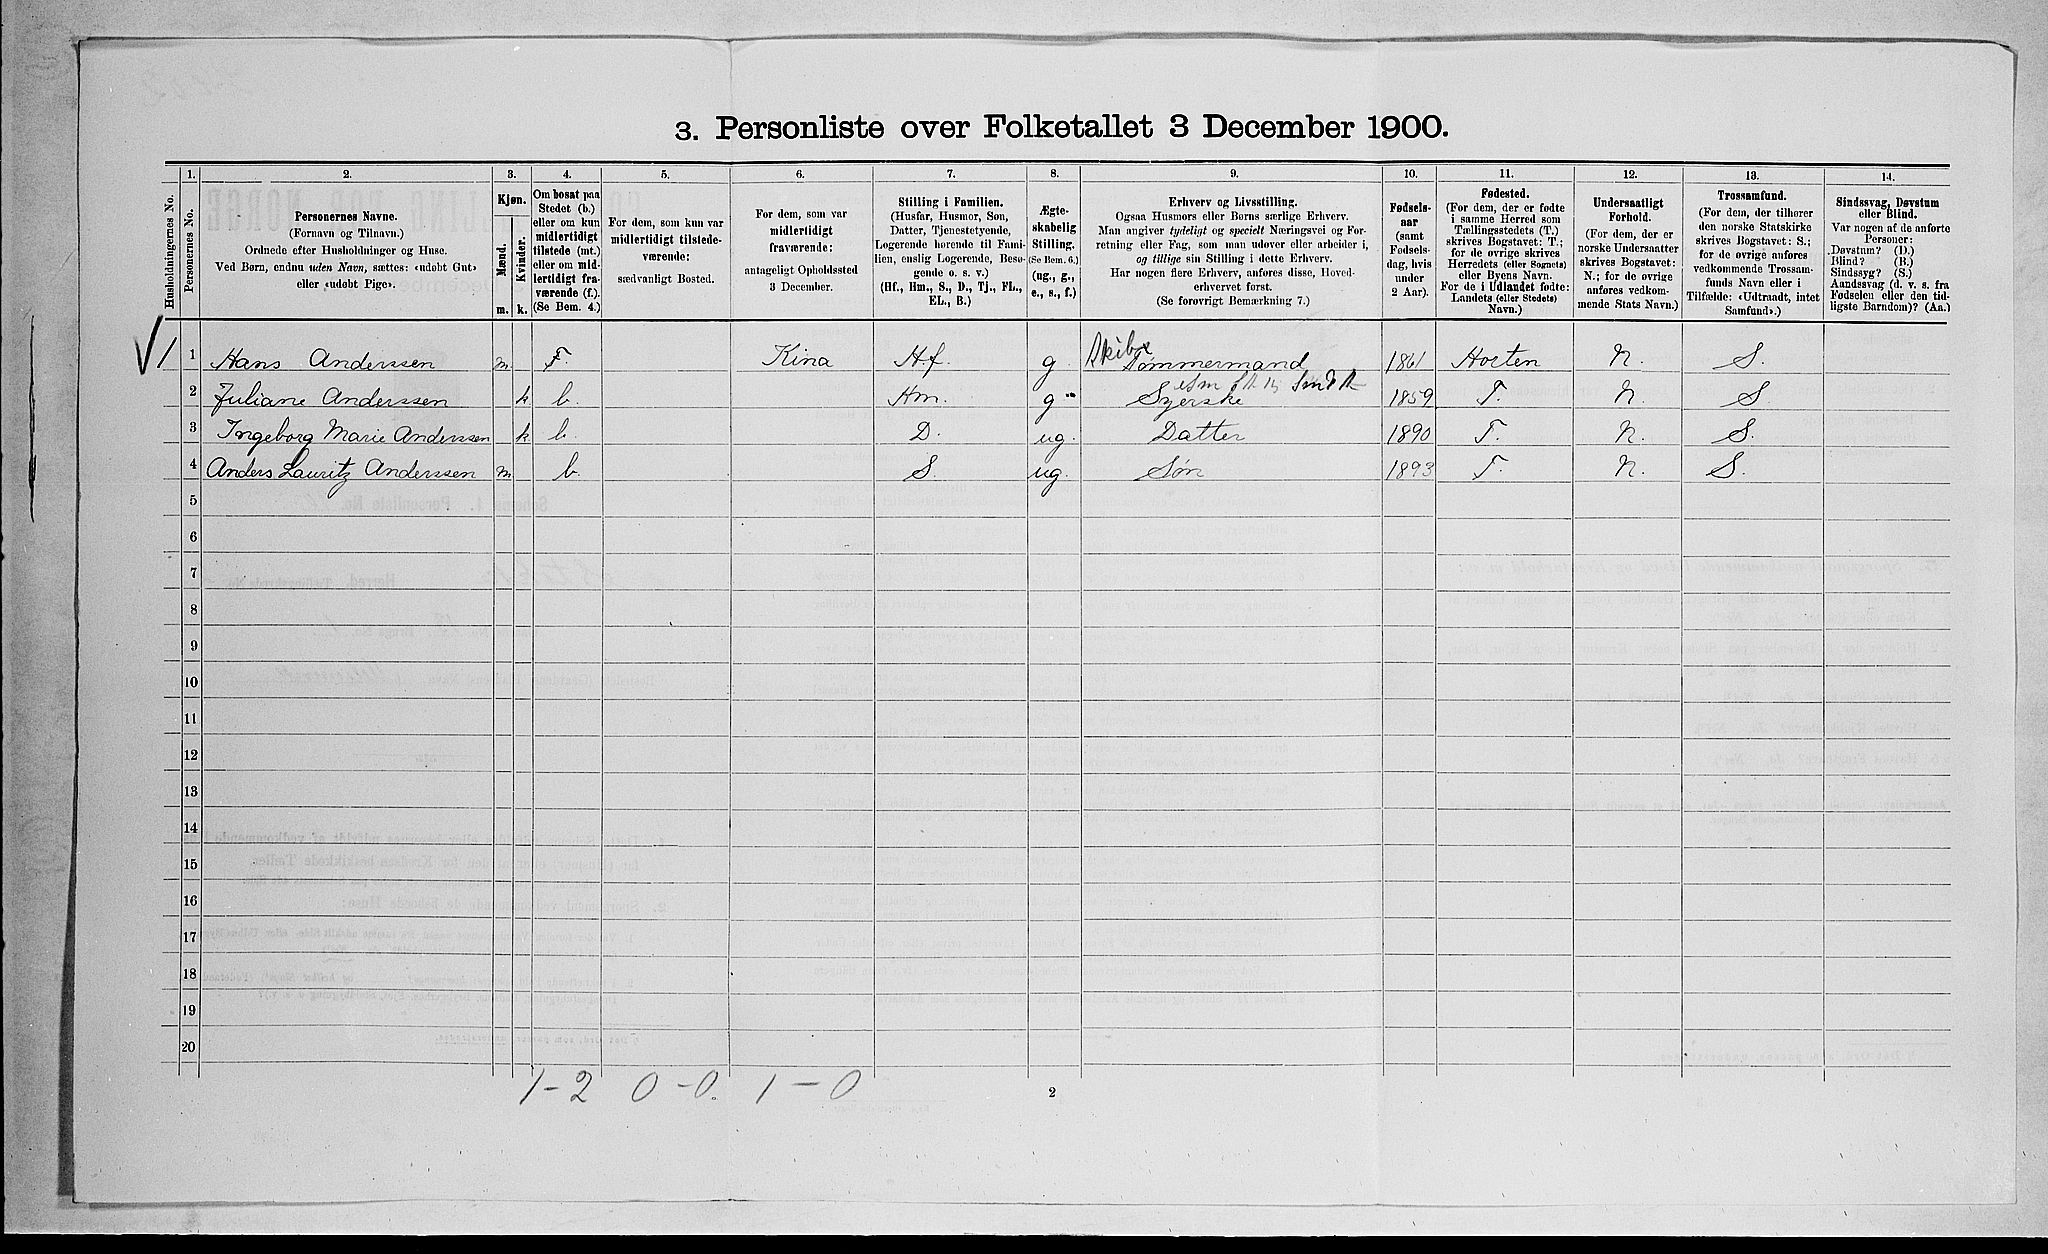 3. Personliste over Folketallet 3 December 1900.
1. 2. 3. 4. 5. 6. 7. 8. 9. 10. 11. 12. 13. 14.
Husholdningernes No.
Personernes No.
Personernes Navne.
(Fornavn og Tilnavn.)
Ordnede efter Husholdninger og Huse.
Ved Børn, endnu uden Navn, sættes: «udøbt Gut»
eller «udøbt Pige».
Kjøn.
Mænd.
Kvinder.
m. k.
Om bosat paa
Stedet (b.)
eller om kun
midlertidigt
tilstede (mt.)
eller om mid-
lertidigt fra-
værende (f.).
(Se Bem. 4.)
For dem, som kun var
midlertidigt tilstede-
værende:
sædvanligt Bosted.
For dem, som var
midlertidigt
fraværende:
antageligt Opholdssted
3 December.
Stilling i Familien.
(Husfar, Husmor, Søn,
Datter, Tjenestetyende,
Logerende hørende til Fami-
lien, enslig Logerende, Besø-
gende o. s. v.)
(Hf., Hm., S., D., Tj., FL.,
EL., B.)
Ægte-
skabelig
Stilling.
(Se Bem. 6.)
(ug., g.,
e., s., f.)
Erhverv og Livsstilling.
Ogsaa Husmors eller Børns særlige Erhverv.
Man angiver tydeligt og specielt Næringsvei og For-
retning eller Fag, som man udøver eller arbeider i,
og tillige sin Stilling i dette Erhverv.
Har nogen flere Erhverv, anføres disse, Hoved-
erhvervet først.
(Se forøvrigt Bemærkning 7.)
Fødsels-
aar
(samt
Fødsels-
dag, hvis
under
2 Aar).
Fødested.
(For dem, der er fødte
i samme Herred som
Tællingsstedets (T.)
skrives Bogstavet: T.;
for de øvrige skrives
Herredets (eller Sognets)
eller Byens Navn.
For de i Udlandet fødte:
Landets (eller Stedets)
Navn.)
Undersaatligt
Forhold.
(For dem, der er
norske Undersaatter
skrives Bogstavet:
N.; for de øvrige
anføres vedkom-
mende Stats Navn.)
Trossamfund.
(For dem, der tilhører
den norske Statskirke
skrives Bogstavet: S.;
for de øvrige anføres
vedkommende Trossam-
funds Navn eller i
Tilfælde: «Udtraadt, intet
Samfund».)
Sindssvag, Døvstum
eller Blind.
Var nogen af de anførte
Personer:
Døvstum? (D.)
Blind? (B.)
Sindssyg? (S.)
Aandssvag (d. v. s. fra
Fødselen eller den tid-
ligste Barndom)? (Aa.)
1 1 Hans Anderssen m. F. Kina Hf. g. Skibs Tømmermand 1861 Horten N. S.
2 Juliane Anderssen k b. Hm. g Syerske 1859 T. N. S
3 Ingeborg Marie Anderssen k b. D. ug. Datter 1890 T. N. S.
4 Anders Lauritz Anderssen m b. S. ug. Søn 1893 T. N. S.
5
6
7
8
9
10
11
12
13
14
15
16
17
18
19
20
1-2 0-0. 1-0
2